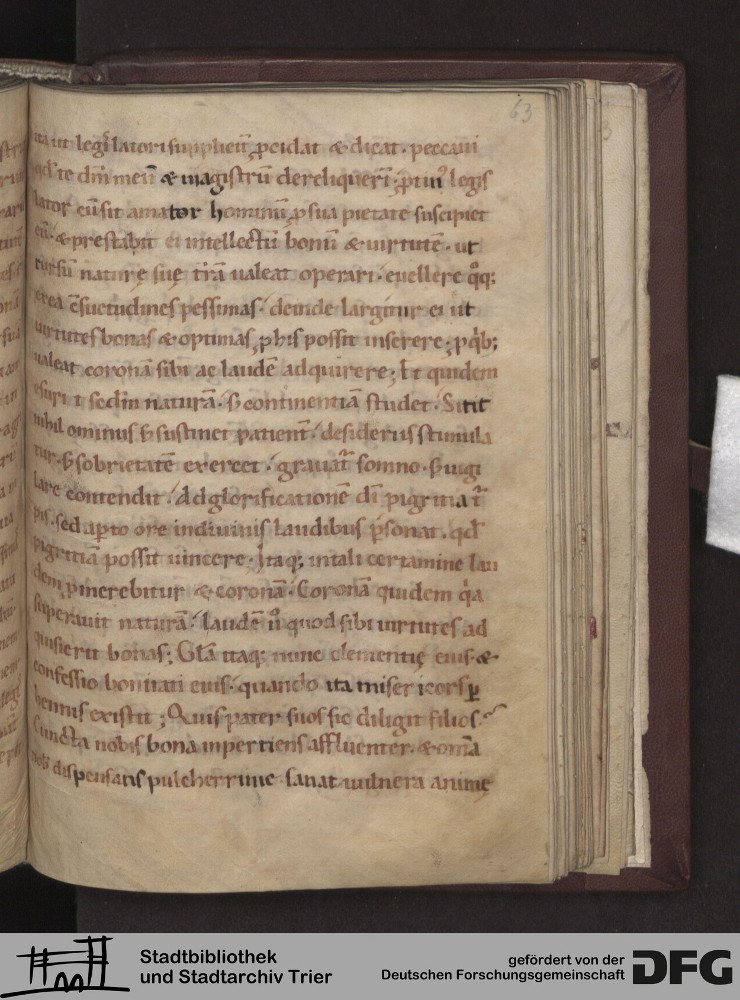 63
ita ut legislatori suppliciter ꝓcidat & dicat. peccaui
qd te dnm meū & magistrū dereliquerī. ꝓtin' legis
lator cū sit amator hominū ꝓ sua pietate suscipiet
eū. & prestabit ei intellectū bonū & uirtutē. ut
rursū naturę suę trā ualeat operari. euellere
c̄suetudines pessimas. deinde largitur ei ut
uirtutes bonas & optimas ꝓ his possit inserere; ꝑ qb;
ualeat coronā sibi ac laudē adquirere; quidem
esuri t scdm naturā. s; continentiā studet. Sitit
nihil ominus s; sustinet patient. desideriis stimula
tur. s; sobrietatē exercet. grauat somno. s; uigi
lare contendit. Ad glorificationē di pigritia
pis. sed apto ore indiuinis laudibus psonat. qd
pigritiā possit uincere. Itaq; in tali certamine lau
dem ꝓmerebitur & coronā. Coronā quidem qa
superauit naturā. laudē u° quod sibi uirtutes ad
quisierit bonas; Gla itaq; nunc clementię eius. &
confessio bonitati eius. quando ita misericors ꝑ
hennis existit; Quis pater suos sic diligit filios.
Cuncta nobis bona impertiens affluenter. & oma
nob dispensatis pulcherrime. sanat uulnera animę
Stadtbibliothek
und Stadtarchiv Trier
gefördert von der
Deutschen Forschungsgemeinschaft
DFG